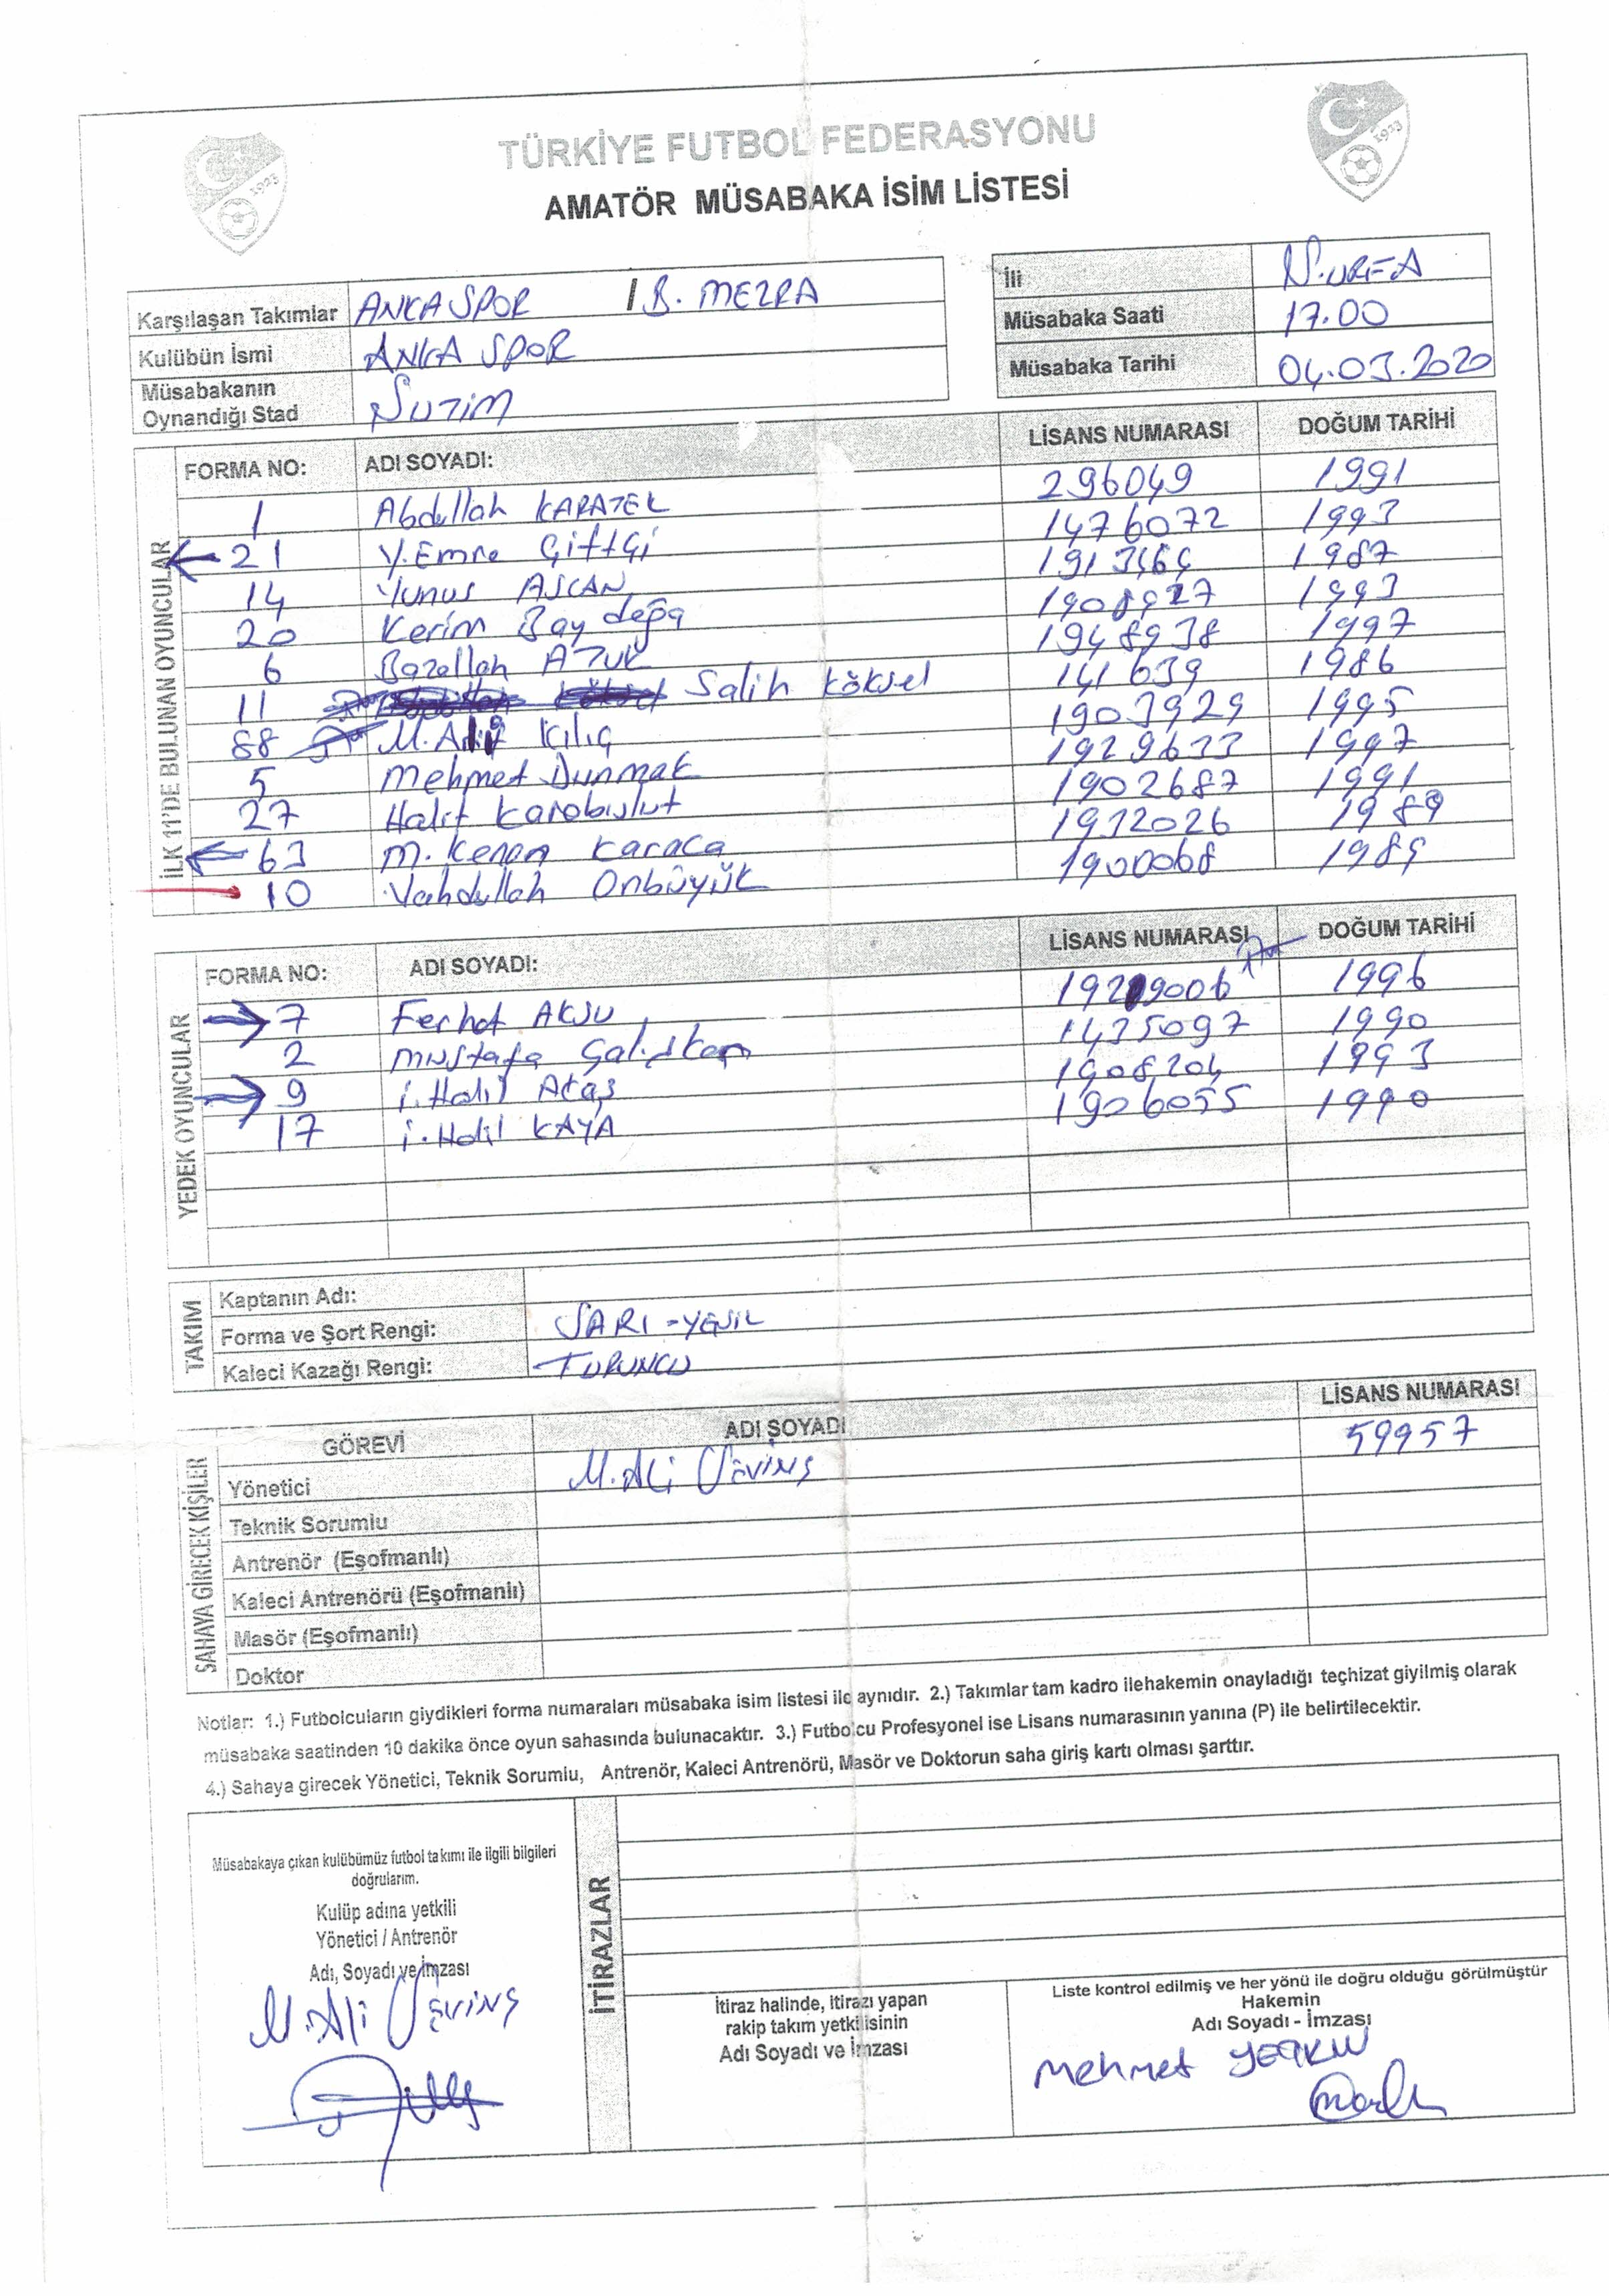 TÜRKİYE FUTBOL FEDERASYONU
AMATÖR MÜSABAKA İSİM LİSTESİ
1923
1923
Karşılaşan Takımlar ANKASPOR / B. MEZRA
Kulübün İsmi ANKA SPOR
Müsabakanın Oynandığı Stad
İli Ş.URFA
Müsabaka Saati 17.00
Müsabaka Tarihi 04.03.2020
İLK 11'DE BULUNAN OYUNCULAR
FORMA NO: ADI SOYADI: LİSANS NUMARASI DOĞUM TARİHİ
1 Abdullah KARATEL 296049 1991
21 Y.Emre Çiftçi 1476072 1993
14 Yunus ASLAN 1987
20 Kerim Baydeğa 1993
6 1948938 1997
11 Salih Köksel 141639 1986
88 M. Kılıç 1903929 1995
5 Mehmet Dunmak 1929633 1997
27 Halit Karabulut 1902687 1991
63 M. Kenan Karaca 1912026 1989
10 Vahdullah Onbüyük 1900068 1989
YEDEK OYUNCULAR
FORMA NO: ADI SOYADI: LİSANS NUMARASI DOĞUM TARİHİ
7 Ferhat AKSU 1996
2 Mustafa Çalışkan 1435097 1990
9 i.Halil Ataş 1908204 1993
17 i.Halil KAYA 1906055 1990
TAKIM
Kaptanın Adı:
Forma ve Şort Rengi: SARI-YEŞİL
Kaleci Kazağı Rengi: TURUNCU
SAHAYA GİRECEK KİŞİLER
GÖREVİ ADI SOYADI LİSANS NUMARASI
Yönetici M.Ali Sevinç 59957
Teknik Sorumlu
Antrenör (Eşofmanlı)
Kaleci Antrenörü (Eşofmanlı)
Masör (Eşofmanlı)
Doktor
Notlar: 1.) Futbolcuların giydikleri forma numaraları müsabaka isim listesi ile aynıdır. 2.) Takımlar tam kadro ilehakemin onayladığı teçhizat giyilmiş olarak
müsabaka saatinden 10 dakika önce oyun sahasında bulunacaktır. 3.) Futbolcu Profesyonel ise Lisans numarasının yanına (P) ile belirtilecektir.
4.) Sahaya girecek Yönetici, Teknik Sorumlu, Antrenör, Kaleci Antrenörü, Masör ve Doktorun saha giriş kartı olması şarttır.
Müsabakaya çıkan kulübümüz futbol takımı ile ilgili bilgileri
doğrularım.
Kulüp adına yetkili
Yönetici / Antrenör
Adı, Soyadı ve İmzası
M.Ali Sevinç
İTİRAZLAR
İtiraz halinde, itirazı yapan
rakip takım yetkilisinin
Adı Soyadı ve İmzası
Liste kontrol edilmiş ve her yönü ile doğru olduğu görülmüştür
Hakemin
Adı Soyadı - İmzası
Mehmet YETKİN